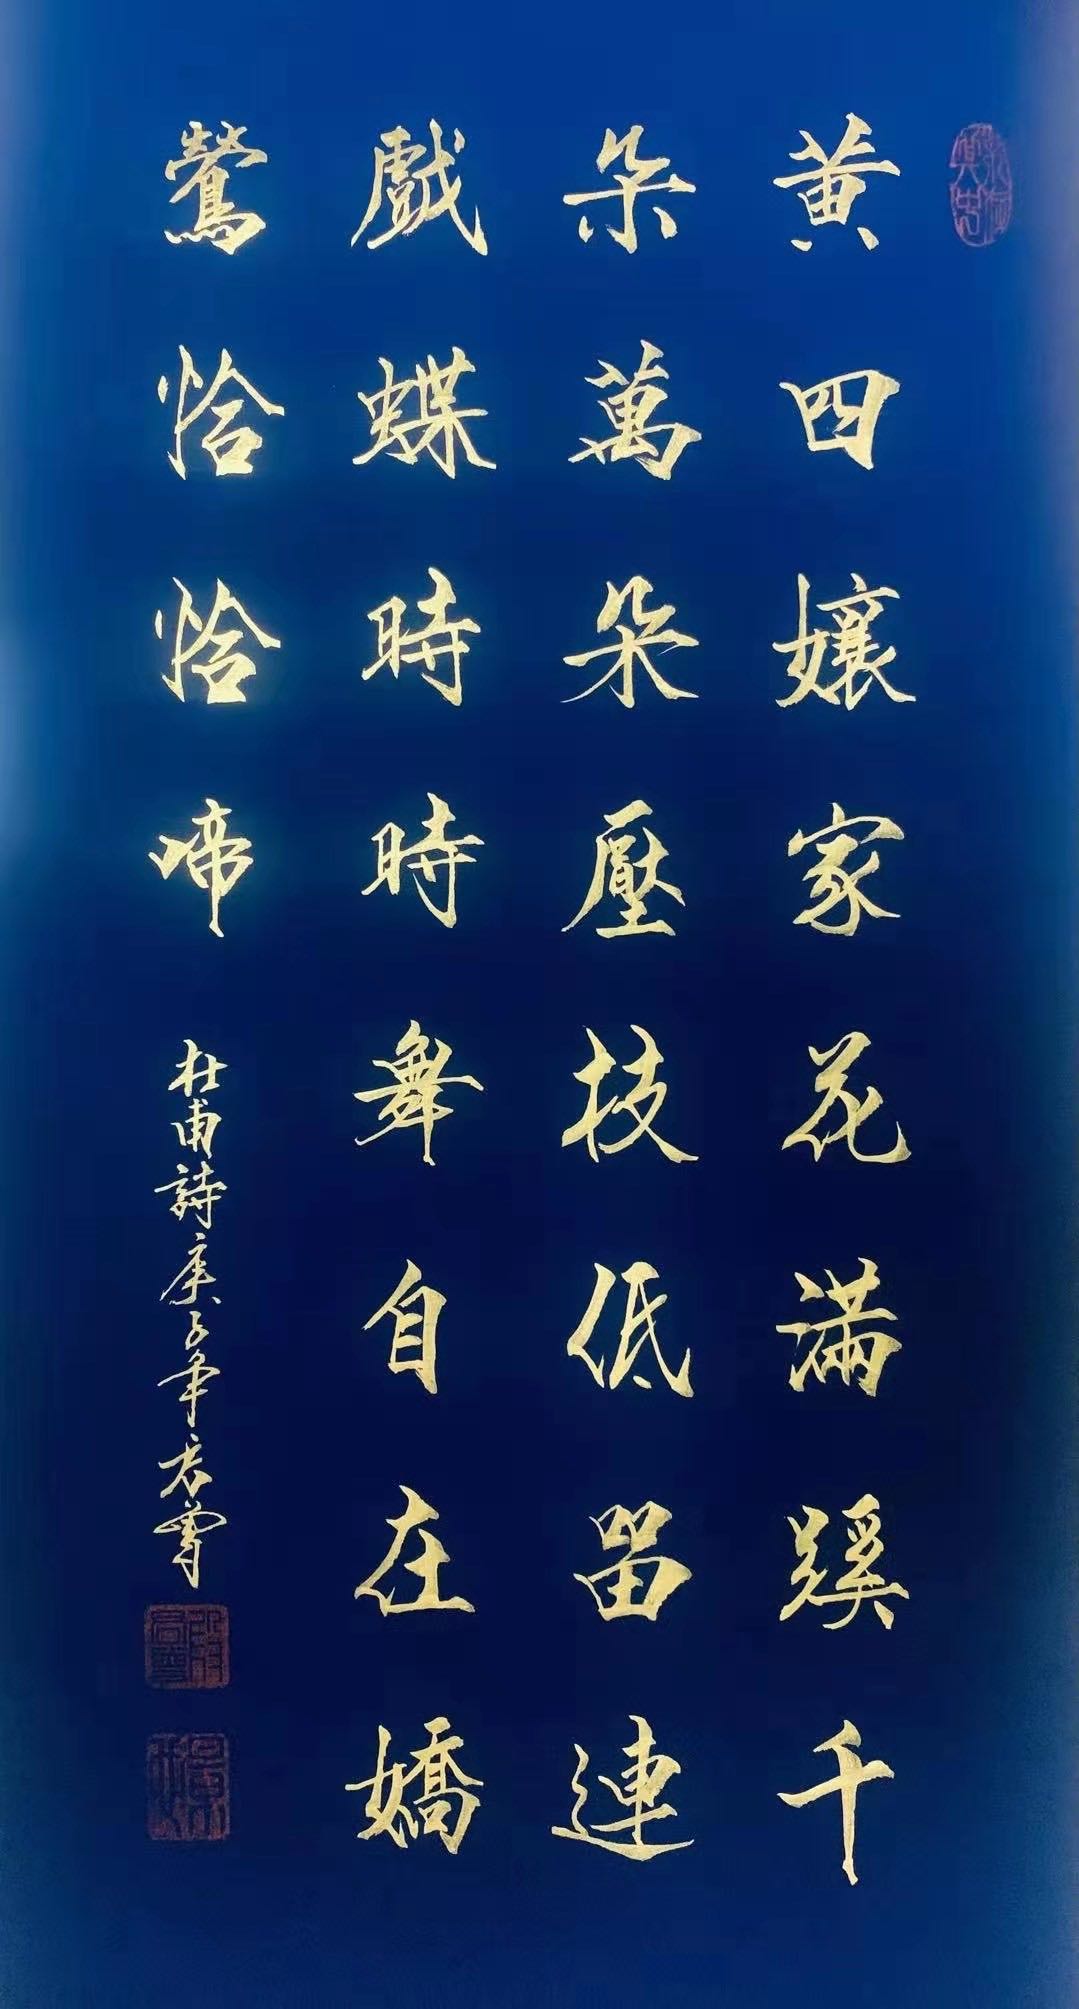 黃四孃家花滿蹊千
朵萬朵壓枝低留連
戲蝶時時舞自在嬌
鶯恰恰啼
杜甫詩庚子年君尊